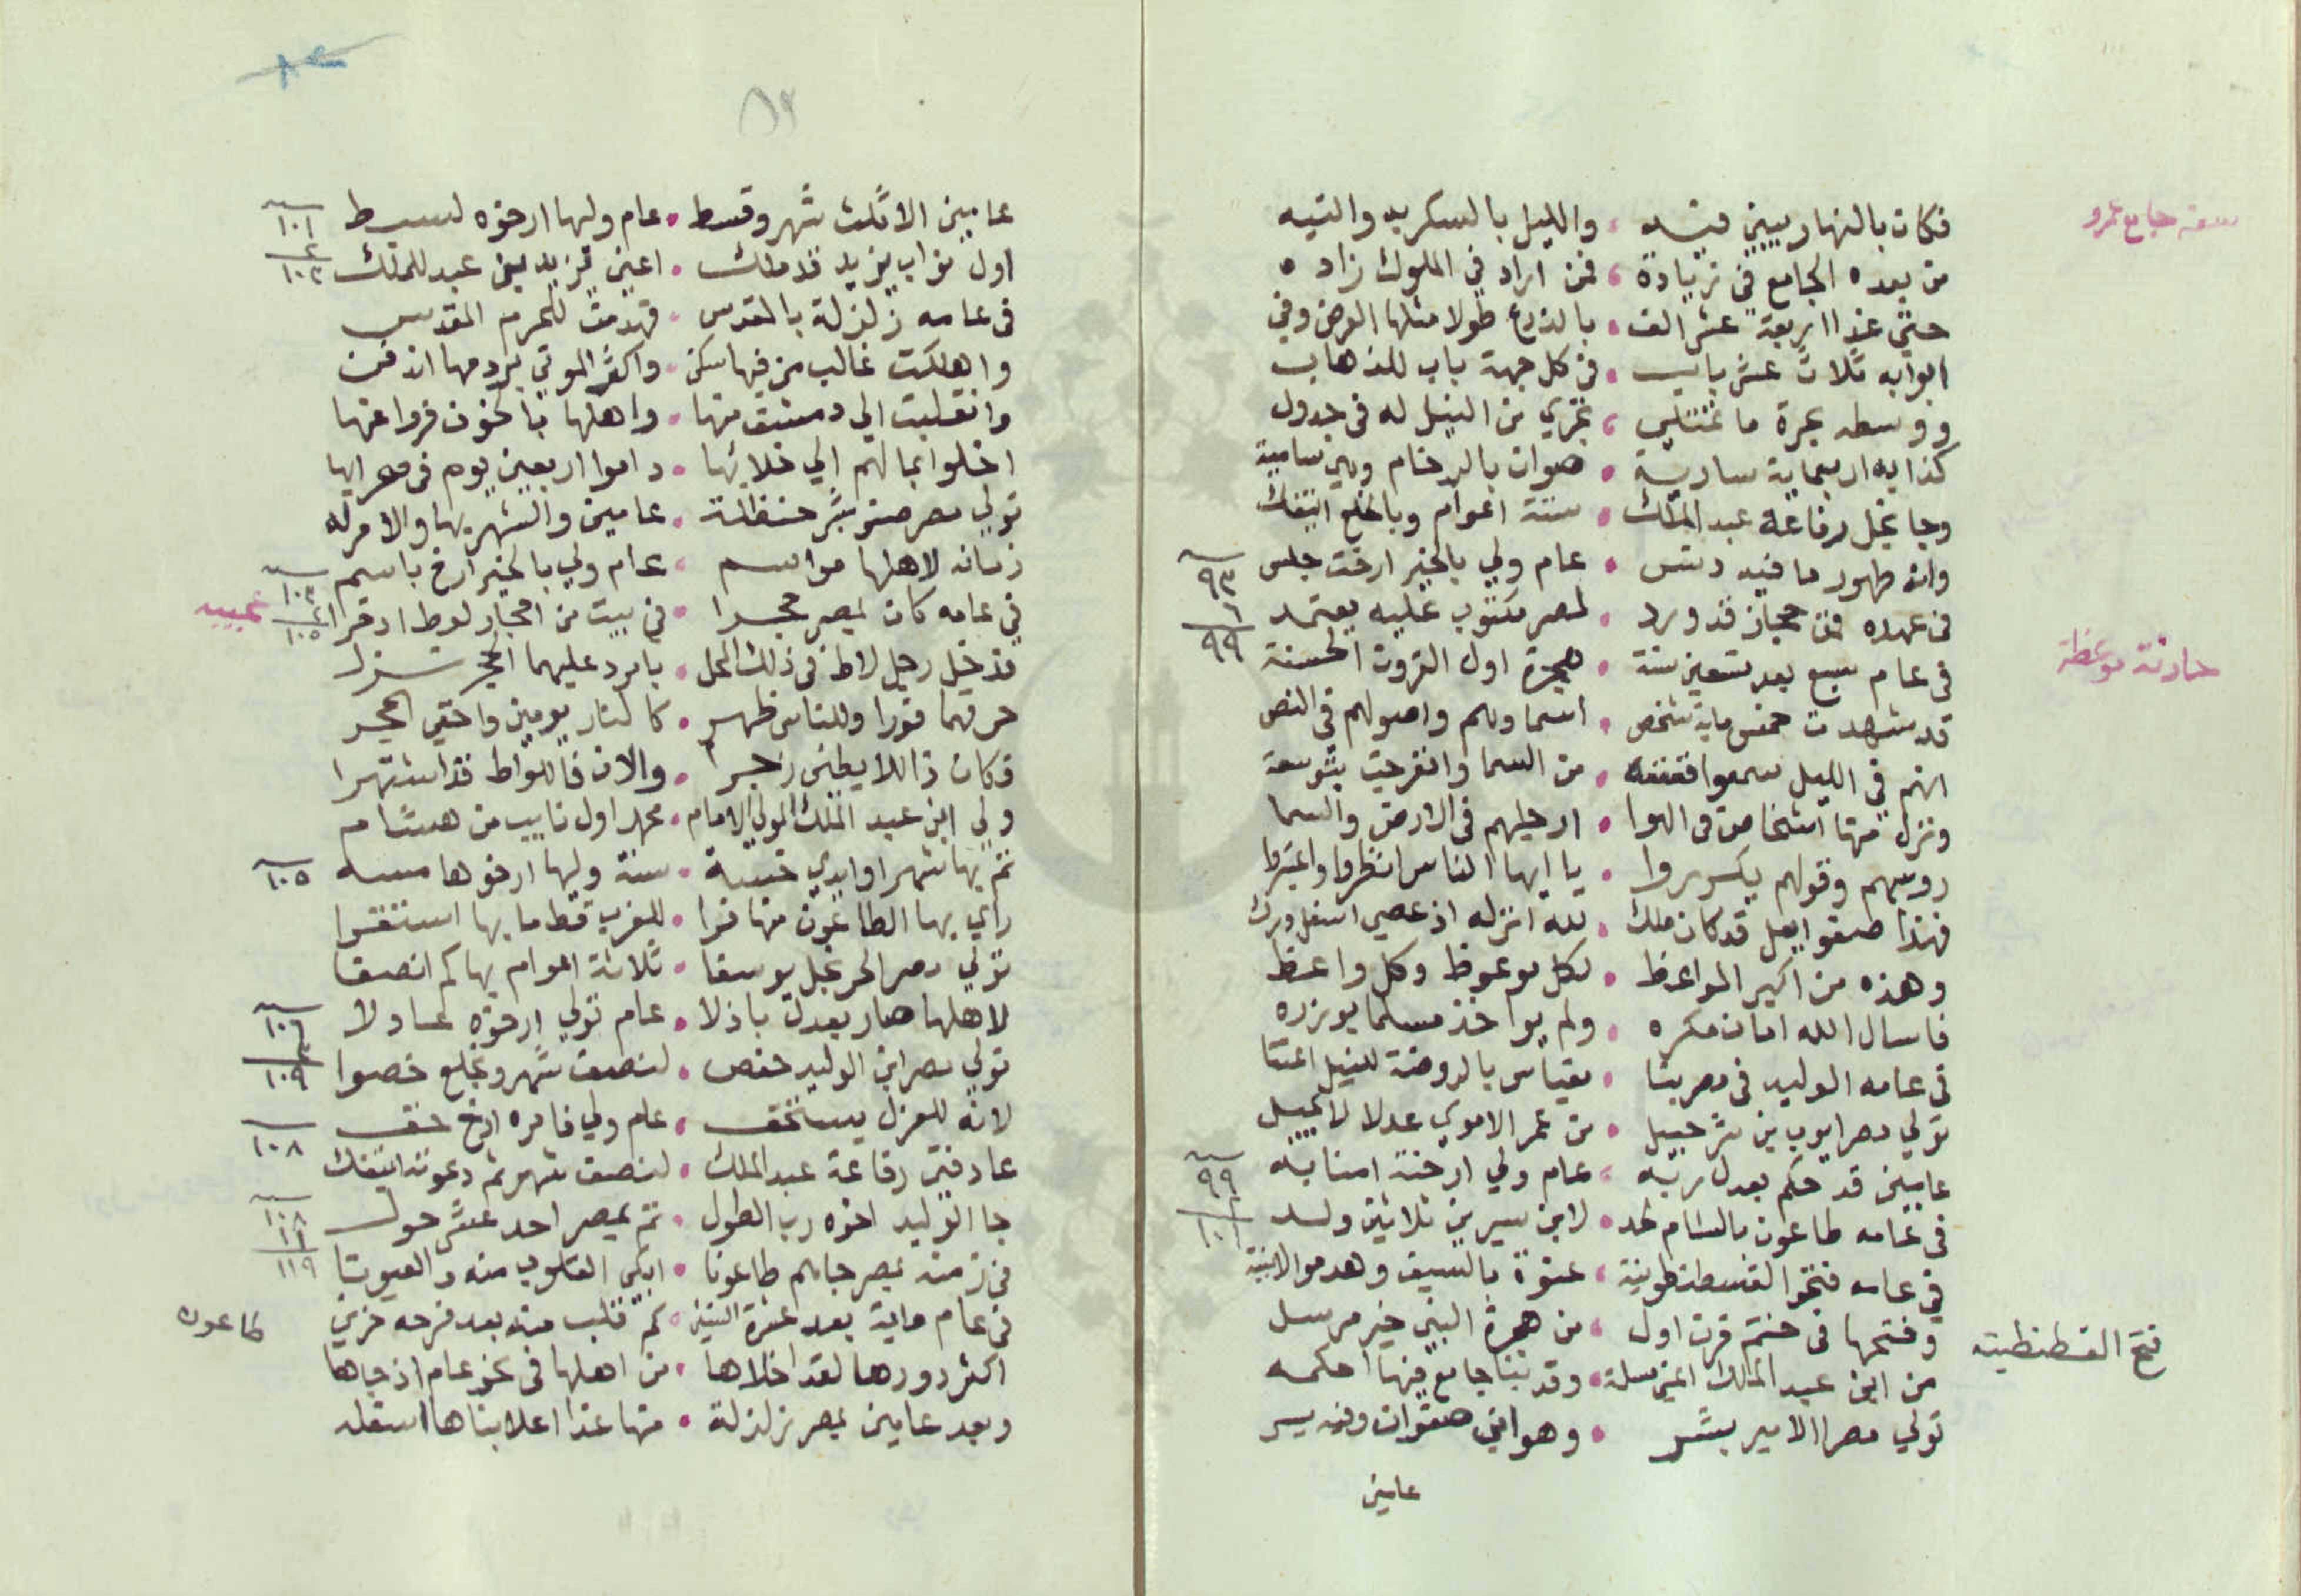 سعة جامع عمرو
فكان بالنهار يبني فيه ، والليل بالسكر به والتيه
من بعده الجامع في زيادة ، فمن اراد في الملوك زاده
حتى غدا اربعة عشر الف ، بالذرع طولا مثلها العرض وفي
ابوابه ثلاث عشر باب ، في كل جهة باب للذهاب
ووسطه بحرة ما تمتلي ، تجري من النيل له في جدول
كذا به اربعماية سارية ، صوان بالرخام وهي سامية
وجا نجل رفاعة عبد الملك ، ستة اعوام وبالخلع انتقك
وانه طهور ما فيه دنس ، عام ولي بالخير ارخت جلس ٩٣
في عهده من حجاز قد ورد ، لمصر مكتوب عليه يعتمد ٩٩
حادثة موعظة
في عام سبع بعد تسعين سنة ، هجرة اول القرون الحسنة
قد شهدت خمس ماية شخص ، اسماوهم واصولهم في النص
انهم في الليل سمعوا قعقعه ، من السما وانفرجت بتوسعة
ونزل منها اشخاص في الهوا ، ارجلهم في الارض والسما
روسهم وقولهم يكرروا ، يا ايها الناس انظروا واعتبروا
فهذا صفوايل قد كان ملك ، لله انزله اذ عصي اسفل درك
وهذه من اكبر المواعظ ، لكل موعوظ وكل واعظ
فاسال الله امان مكره ، ولم يواخذ مسلما بوزره
في عامه الوليد في مصر بنا ، مقياس بالروضة للنيل اعتنا
تولي مصر ايوب بن شرحبيل ، من عمر الاموي عدلا لا يميل
عامين قد حكم بعدل ربه ، عام ولي ارخته امنا به ٩٩
في عامه طاعون بالشام ، لابن سيرين ثلاثين ولد
في عامه فتحوا القسطنطينية ، عنوة بالسيف وهدموا الابنية
فتح القسطنطينية
وفتحها في ختم قرن اول ، من هجرة النبي خير مرسل
من ابن عبد المالك اعني مسلمة ، وقد بنا جامع فيها احكمه
تولي مصرا الامير بشر ، وهو ابن صفوان وفيه يسر
عامين
٨٢
عامين الا ثلث شهر وقسط ، عام ولها ارخوه لسبط ١٠١
اول نواب يزيد قد ملك ، اعني يزيد بن عبد الملك ١٠٢
في عامه زلزلة بالقدس ، فهدمت للحرم المقدس
واهلكت غالب من فيها سكن ، واكثر الموتي بردمها اندفن
وانقلبت الي دمشق منها ، واهلها بالخوف فروا عنها
اخلوا بمالهم الي خلايها ، داموا اربعين يوم في صحرايها
تولي مصر صنو بشر حنظلة ، عامين والشهر بها والامر له
زمانه لاهلها مواسم ، عام ولي بالخير ارخ باسم ١٠٣
عجيبه
في عامه كان بمصر حجرا ، في بيت من احجار لوط ١٠٥
فدخل رجل لاط في ذلك المحل ، بامرد عليهما الحجر نزل
حرقهما فورا وللناس ظهر ، كالنار يومين واختفي الحجر
فكان ذا للايطين زجرا ، والان فاللواط قد اشتهرا
ولي ابن عبد الملك المولي الامام ، محمد اول نايب من هشام
تم بها شهرا وابدي خسة ، سنة ولها ارخوها مسه ١٠٥
راي بها الطاعون منها فرا ، للغرب قط ما بها استقرا
تولي مصر الحر نجل يوسفا ، ثلاثة اعوام بها كم انصفا
لاهلها صار بعدل باذلا ، عام تولي ارخوه عادلا ١٠٦
تولي مصر ابن الوليد حفص ، لنصف شهر وبخلع خصوا ١٠٩
لانه للعزل يستخف ، عام ولي فامره ارخ خف ١٠٨
عاد فتي رفاعة عبد الملك ، لنصف شهر ثم دعوته انتفك
جا الوليد اخوه رب الطول ، تم بمصر احد عشر حول ١٠٨
في زمنه بمصر جاهم طاعونا ، ابكي القلوب منه والعيونا ١١٩
طاعون
في عام ماية بعد عشرة اثنين ، كم قلب منه بعد فرحه حزين
اكثر دورها لقد اخلاها ، من اهلها في نحو عام اذ جاها
وبعد عامين بمصر زلزلة ، منها غدا اعلا بناها اسفله